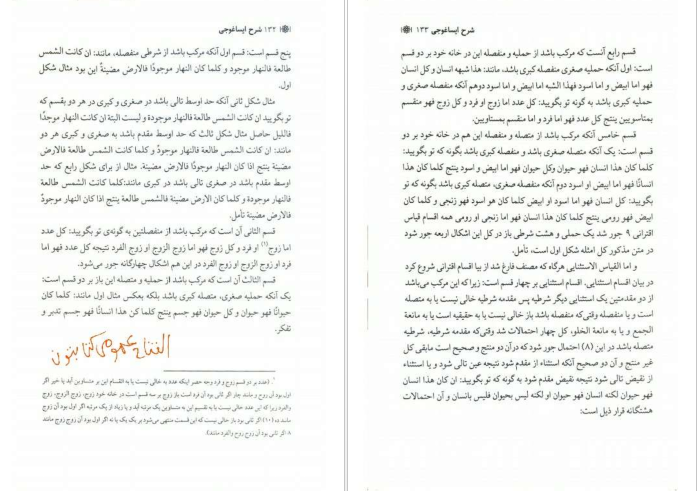 ۱۳۲ شرح ایساغوجی
پنج قسم است: قسم اول آنکه مرکب باشد از شرطی منفصله، مانند: ان کانت الشمس
طالعة فالنهار موجود و کلما کان النهار موجودًا فالارض مضیئةٌ این بود مثال شکل
اول.
مثال شکل ثانی آنکه حد اوسط تالی باشد در صغری و کبری در هر دو بقسم که
تو بگویید ان کانت الشمس طالعة فالنهار موجودة و لیست البتة ان کانت النهار موجدًا
فاللیل حاصل مثال شکل ثالث که حد اوسط مقدم باشد به صغری و کبری هر دو
مانند: ان کانت الشمس طالعة فالنهار موجودٌ و کلما کانت الشمس طالعة فالارض
مضیئة ینتج اذا کان النهار موجودًا فالارض مضیئة. مثال از برای شکل رابع که حد
اوسط مقدم باشد در صغری تالی باشد در کبری مانند:کلما کانت الشمس طالعة
فالنهار موجودٌ و کلما کان الارض مضیئة فالشمس طالعة ینتج اذا کان النهار موجودٌ
فالارض مضیئة تأمل.
قسم الثانی آن است که مرکب باشد از منفصلتین به گونه‌ی تو بگویید: کل عدد
اما زوج(۱) او فرد و کل زوج فهو اما زوج الزوج او زوج الفرد نتیجه کل عدد فهو اما
فرد او زوج الزوج او زوج الفرد در این هم اشکال چهارگانه جور می‌شود.
قسم الثالث آن است که مرکب باشد از حملیه و متصله این باز بر دو قسم است:
یک آنکه حملیه صغری، متصله کبری باشد بلکه بعکس مثال اول مانند: کلما کان
حیوانًا فهو حیوان و کل حیوان فهو جسم ینتج کلما کن هذا انسانًا فهو جسم تدبر و
تفکر.
۱۳۳ شرح ایساغوجی
قسم رابع آنست که مرکب باشد از حملیه و منفصله این در خانه خود بر دو قسم
است: اول آنکه حملیه صغری منفصله کبری باشد، مانند: هذا شبیهه انسان و کل انسان
فهو اما ابیض و اما اسود فهذا الشبه اما ابیض و اما اسود دوهم آنکه منفصله صغری و
حملیه کبری باشد به گونه تو بگویید: کل عدد اما زوج او فرد و کل زوج فهو منقسم
بمتاسویین ینتج کل عدد فهو اما فرد و اما منقسم بمستاویین.
قسم خامس آنکه مرکب باشد از متصله و منفصله این هم در خانه خود بر دو
قسم است: یک آنکه متصله صغری باشد و منفصله کبری باشد بگونه که تو بگویید:
کلما کان هذا انسان فهو حیوان وکل حیوان فهو اما ابیض و اسود ینتج کلما کان هذا
انسانًا فهو اما ابیض او اسود دوم آنکه منفصله صغری، متصله کبری باشد بگونه که تو
بگویید: کل انسان فهو اما اسود او ابیض کلما کان هو اسود فهو زنجی و کلما کان
ابیض فهو رومی ینتج کلما کان هذا انسان فهو اما زنجی او رومی همه اقسام قیاس
اقترانی ۹ جور شد یک حملی و هشت شرطی باز در کل این اشکال اربعه جور شود
در متن مذکور کل امثله شکل اول است، تأمل.
و اما القیاس الاستثنایی هرگاه که مصنف فارغ شد از بیا اقسام اقترانی شروع کرد
در بیان اقسام استثنایی. اقسام استثنایی بر چهار قسم است: زیرا که این مرکب می‌باشد
از دو مقدمتین یک استثنایی دیگر شرطیه پس مقدمه شرطیه خالی نیست یا به متصله
است و یا منفصله وقتی‌که منفصله باشد باز خالی نیست یا به حقیقیه است یا به مانعة
الجمع و یا به مانعة الخلو، کل چهار احتمالات شد وقتی‌که مقدمه شرطیه، شرطیه
متصله باشد در این (۸) احتمال جور شود که درآن دو منتج و صحیح است مابقی کل
غیر منتج و آن دو صحیح آنکه استثناء از مقدم شود نتیجه عین تالی شود و یا استثناء
از نقیض تالی شود نتیجه نقیض مقدم شود به گونه که تو بگویید: ان کان هذا انسان
فهو حیوان لکنه انسان فهو حیوان او لکنه لیس بحیوان فلیس بانسان و آن احتمالات
هشتگانه قرار ذیل است: